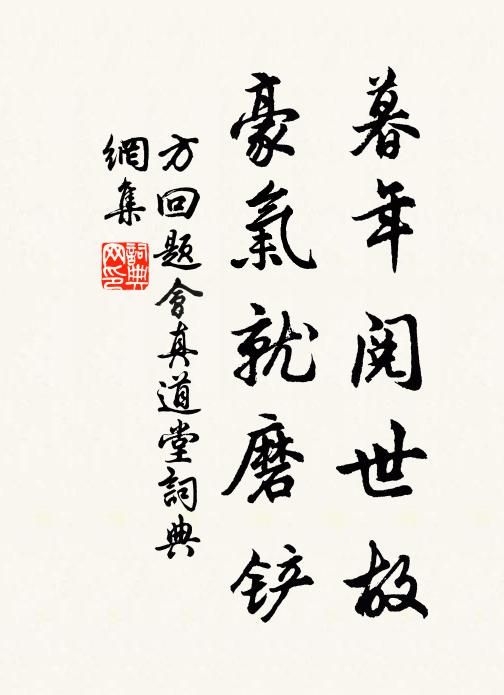 暮年阅世故
豪氣就磨铲
方回题會真道堂詞典
網集
詞典网印